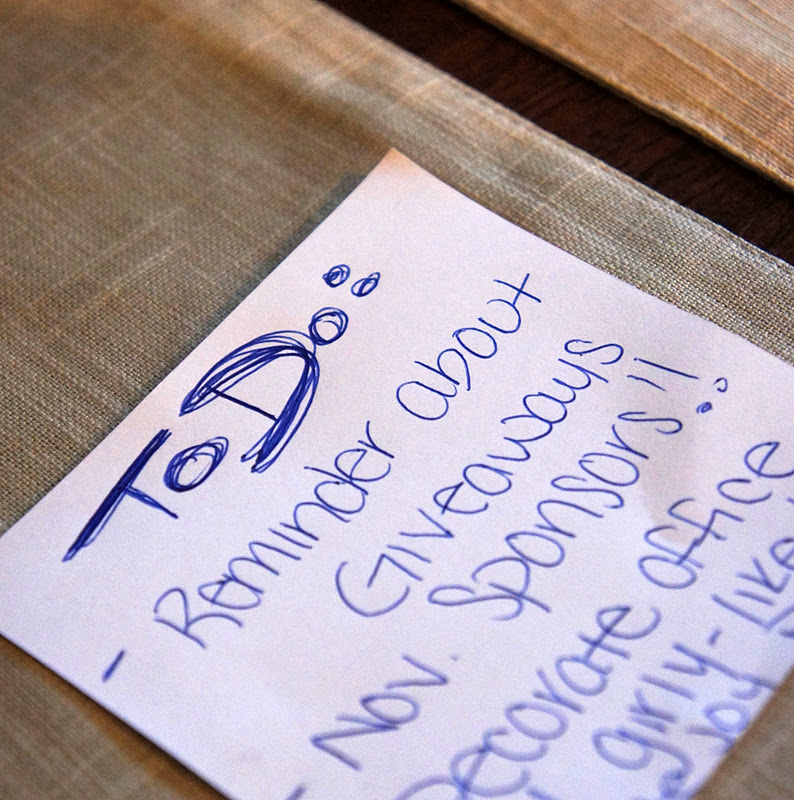 To Do:
- Reminder about
Giveaways
- Nov. Sponsors!!
Decorate office
girly - Like
Joy